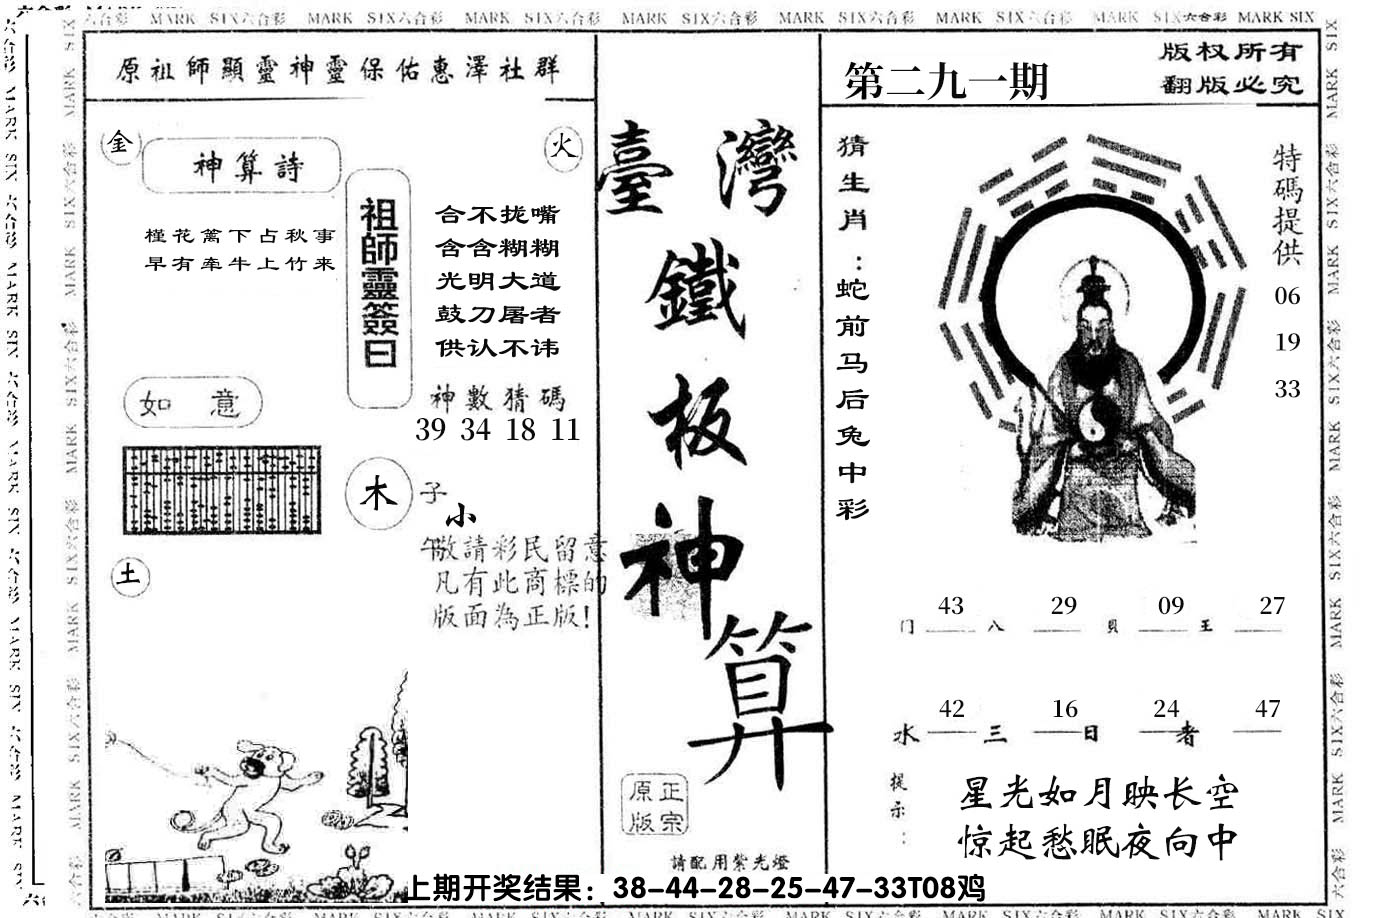 六合彩 MARK SIX六合彩 MARK SIX六合彩 MARK SIX六合彩 MARK SIX六合彩 MARK SIX六合彩 MARK SIX六合彩 MARK SIX六合彩 MARK SIX
原祖師顯靈神靈保佑惠澤社群
金
火
神算詩
槿花篱下占秋事
早有牵牛上竹来
祖師靈簽曰
合不拢嘴
含含糊糊
光明大道
鼓刀屠者
供认不讳
神數猜碼
39 34 18 11
如 意
木
子
小
午
敬請彩民留意
凡有此商標的
版面為正版!
土
臺灣
鐵
板
神
算
正宗
原版
請配用紫光燈
第二九一期
版权所有
翻版必究
猜生肖：蛇前马后兔中彩
特碼提供
06
19
33
43 29 09 27
门 八 貝 王
42 16 24 47
水 三 日 者
提示：
星光如月映长空
惊起愁眠夜向中
上期开奖结果：38-44-28-25-47-33T08鸡